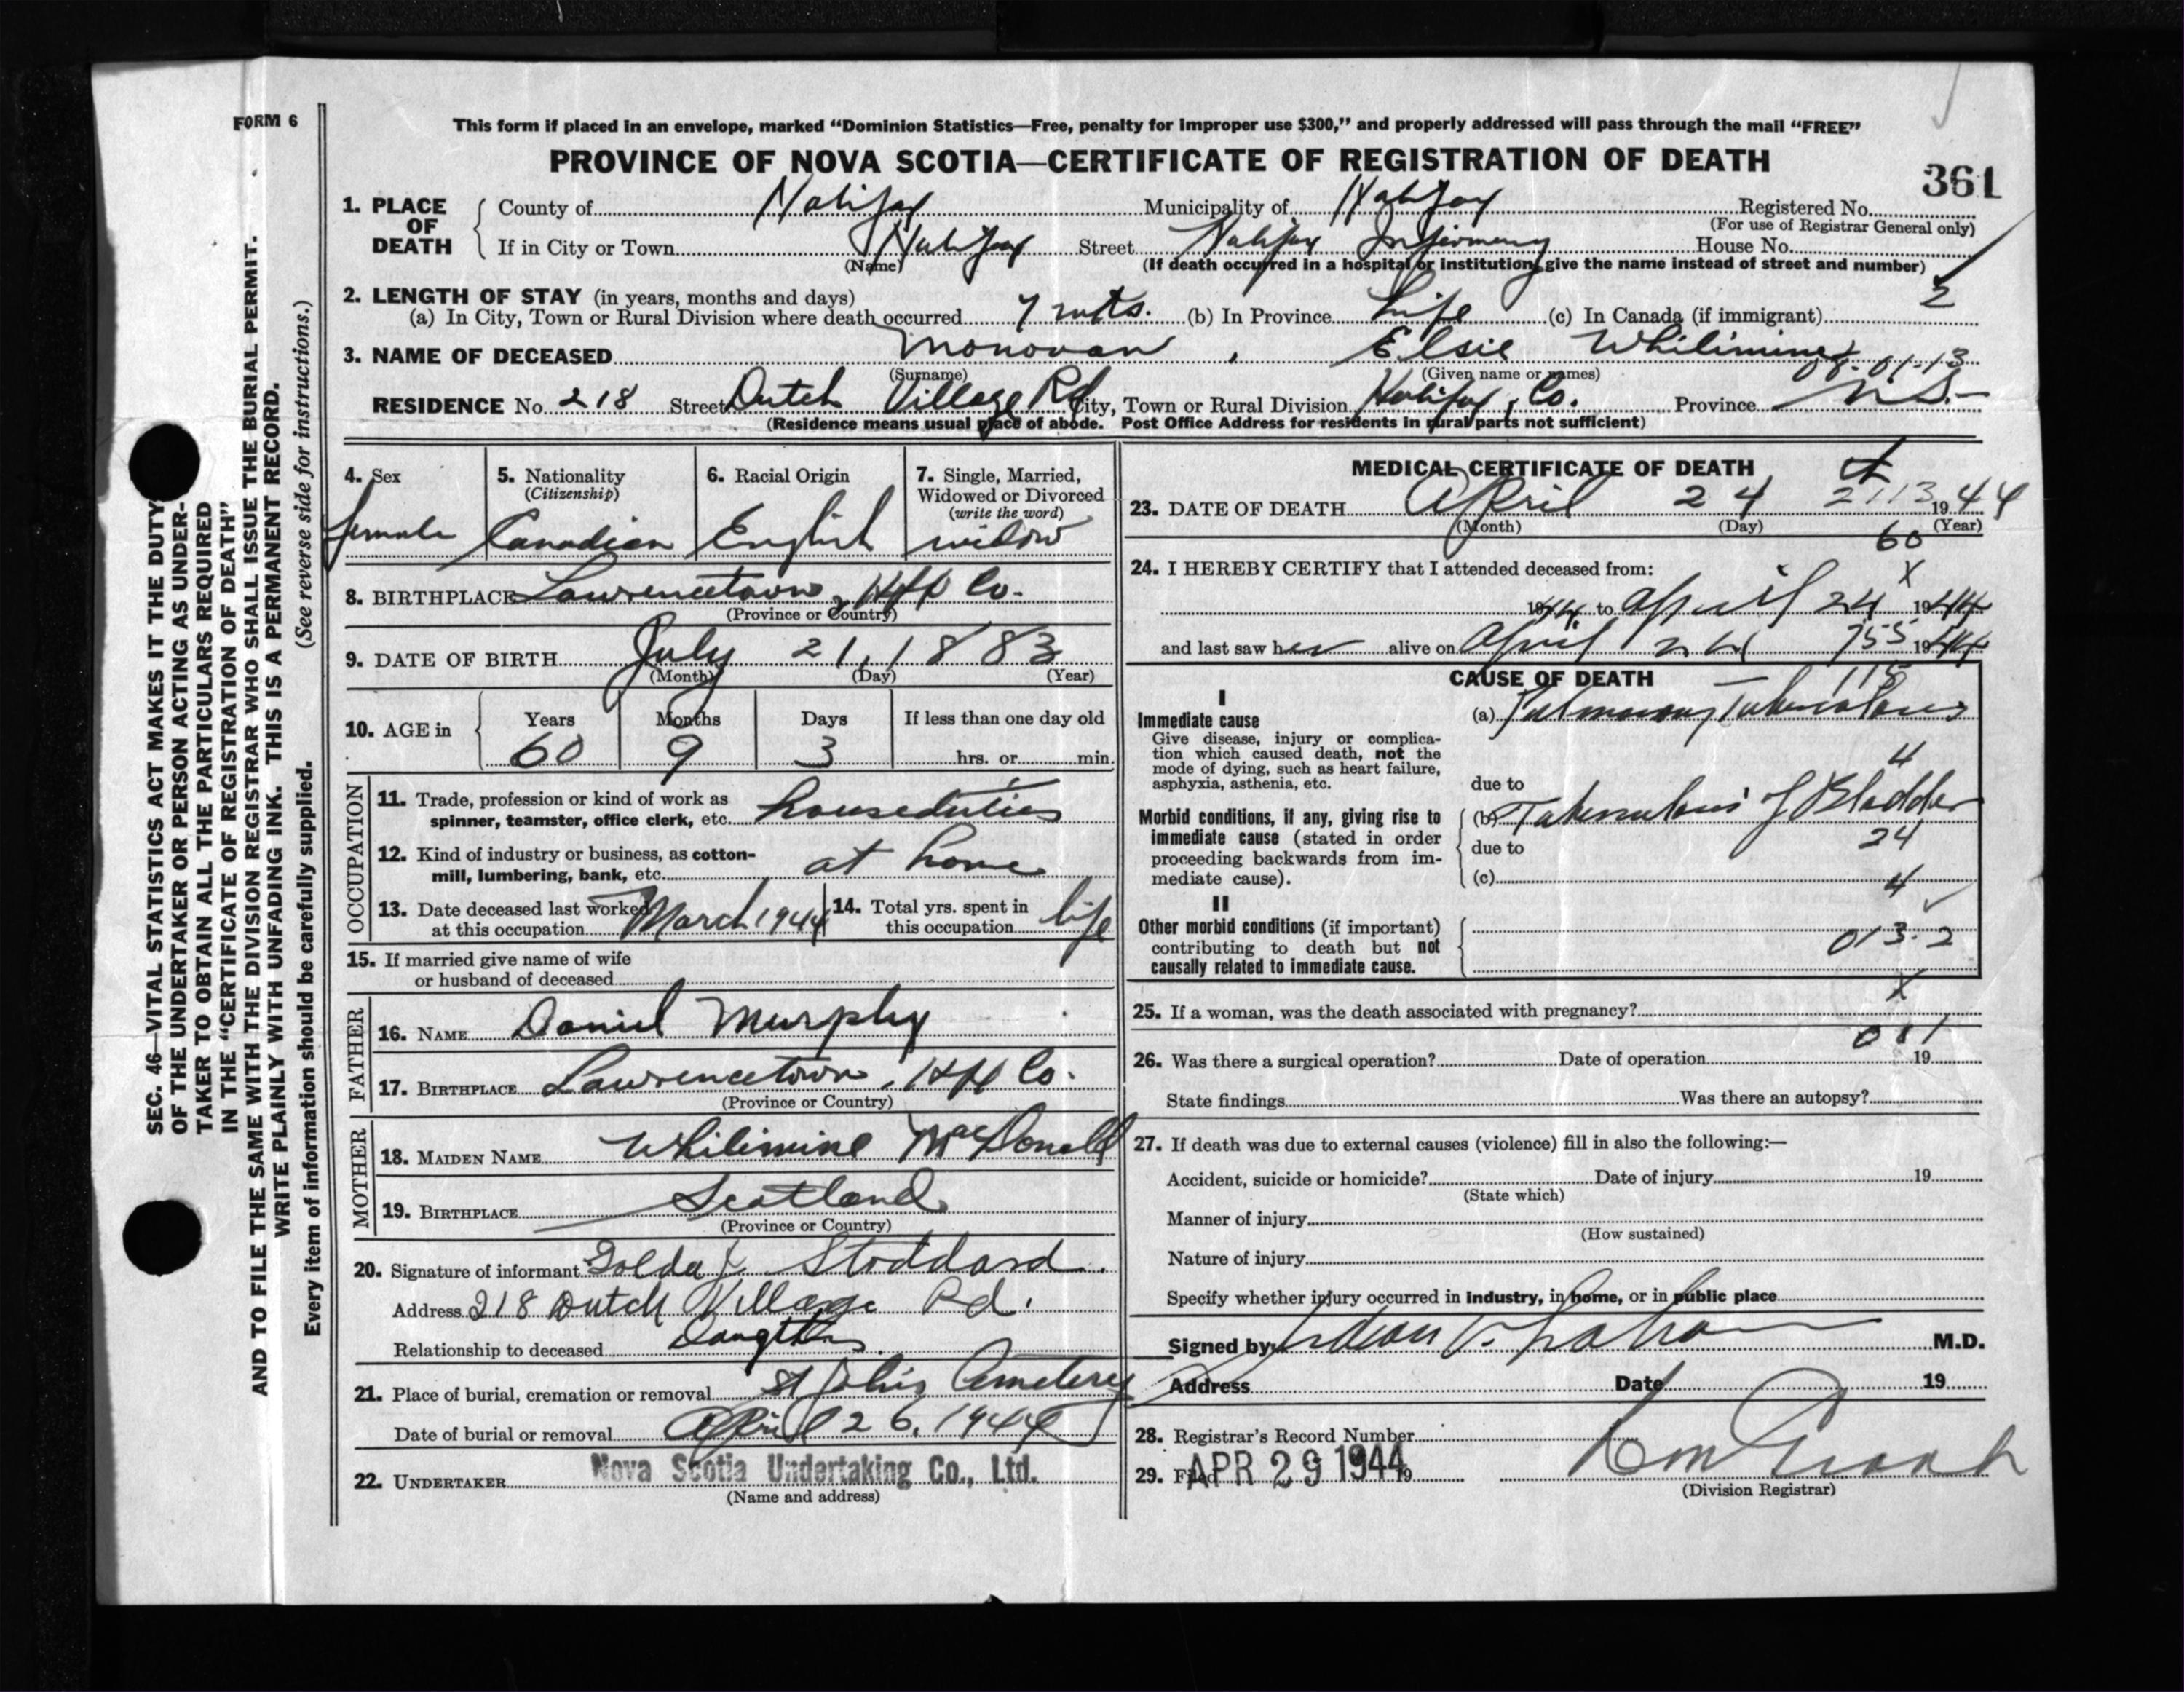 FORM 6
This form if placed in an envelope, marked “Dominion Statistics—Free, penalty for improper use $300,” and properly addressed will pass through the mail “FREE”
PROVINCE OF NOVA SCOTIA—CERTIFICATE OF REGISTRATION OF DEATH
361
1. PLACE OF DEATH
County of Halifax Municipality of Halifax Registered No.
(For use of Registrar General only)
If in City or Town Halifax Street Halifax Infirmary House No.
(Name) (If death occurred in a hospital or institution, give the name instead of street and number)
2
2. LENGTH OF STAY (in years, months and days)
(a) In City, Town or Rural Division where death occurred 7 mts. (b) In Province Life (c) In Canada (if immigrant)
3. NAME OF DECEASED Monovan, Elsie Whilimine
(Surname) (Given name or names) 08-01-13
RESIDENCE No. 218 Street Dutch Village Rd City, Town or Rural Division Halifax, Co. Province N.S.
(Residence means usual place of abode. Post Office Address for residents in rural parts not sufficient)
4. Sex
female
5. Nationality
(Citizenship)
Canadian
6. Racial Origin
English
7. Single, Married, Widowed or Divorced
(write the word)
widow
8. BIRTHPLACE Lawrencetown, Hfx Co.
(Province or Country)
9. DATE OF BIRTH July 21, 1883
(Month) (Day) (Year)
10. AGE in
Years Months Days If less than one day old
60 9 3 hrs. or min.
OCCUPATION
11. Trade, profession or kind of work as
spinner, teamster, office clerk, etc. houseduties
12. Kind of industry or business, as cotton-
mill, lumbering, bank, etc. at home
13. Date deceased last worked
at this occupation March 1944
14. Total yrs. spent in
this occupation life
15. If married give name of wife
or husband of deceased
FATHER
16. NAME Daniel Murphy
17. BIRTHPLACE Lawrencetown, Hfx Co.
(Province or Country)
MOTHER
18. MAIDEN NAME Whilimine MacDonald
19. BIRTHPLACE Scotland
(Province or Country)
20. Signature of informant Golda Stoddard.
Address 218 Dutch Village Rd.
Relationship to deceased Daugther
21. Place of burial, cremation or removal St John's Cemetery
Date of burial or removal April 26, 1944
22. UNDERTAKER Nova Scotia Undertaking Co., Ltd.
(Name and address)
MEDICAL CERTIFICATE OF DEATH
23. DATE OF DEATH April 24 2113 1944
(Month) (Day) (Year)
60
24. I HEREBY CERTIFY that I attended deceased from:
X
1944 to April 24 1944
and last saw her alive on April 24 755 1944
CAUSE OF DEATH
115
I
Immediate cause
Give disease, injury or complica-
tion which caused death, not the
mode of dying, such as heart failure,
asphyxia, asthenia, etc.
(a) Pulmonary Tuberculosis
4
due to
Morbid conditions, if any, giving rise to
immediate cause (stated in order
proceeding backwards from im-
mediate cause).
(b) Tuberculosis of Bladder
due to 24
(c) 4
II
Other morbid conditions (if important)
contributing to death but not
causally related to immediate cause.
013.2
X
25. If a woman, was the death associated with pregnancy?
26. Was there a surgical operation? Date of operation 19
State findings Was there an autopsy?
27. If death was due to external causes (violence) fill in also the following:—
Accident, suicide or homicide? Date of injury 19
(State which)
Manner of injury
(How sustained)
Nature of injury
Specify whether injury occurred in industry, in home, or in public place
Signed by M.D.
Address Date 19
28. Registrar's Record Number
29. Filed APR 29 1944 19
(Division Registrar)
SEC. 46—VITAL STATISTICS ACT MAKES IT THE DUTY
OF THE UNDERTAKER OR PERSON ACTING AS UNDER-
TAKER TO OBTAIN ALL THE PARTICULARS REQUIRED
IN THE “CERTIFICATE OF REGISTRATION OF DEATH”
AND TO FILE THE SAME WITH THE DIVISION REGISTRAR WHO SHALL ISSUE THE BURIAL PERMIT.
WRITE PLAINLY WITH UNFADING INK. THIS IS A PERMANENT RECORD.
Every item of information should be carefully supplied. (See reverse side for instructions.)